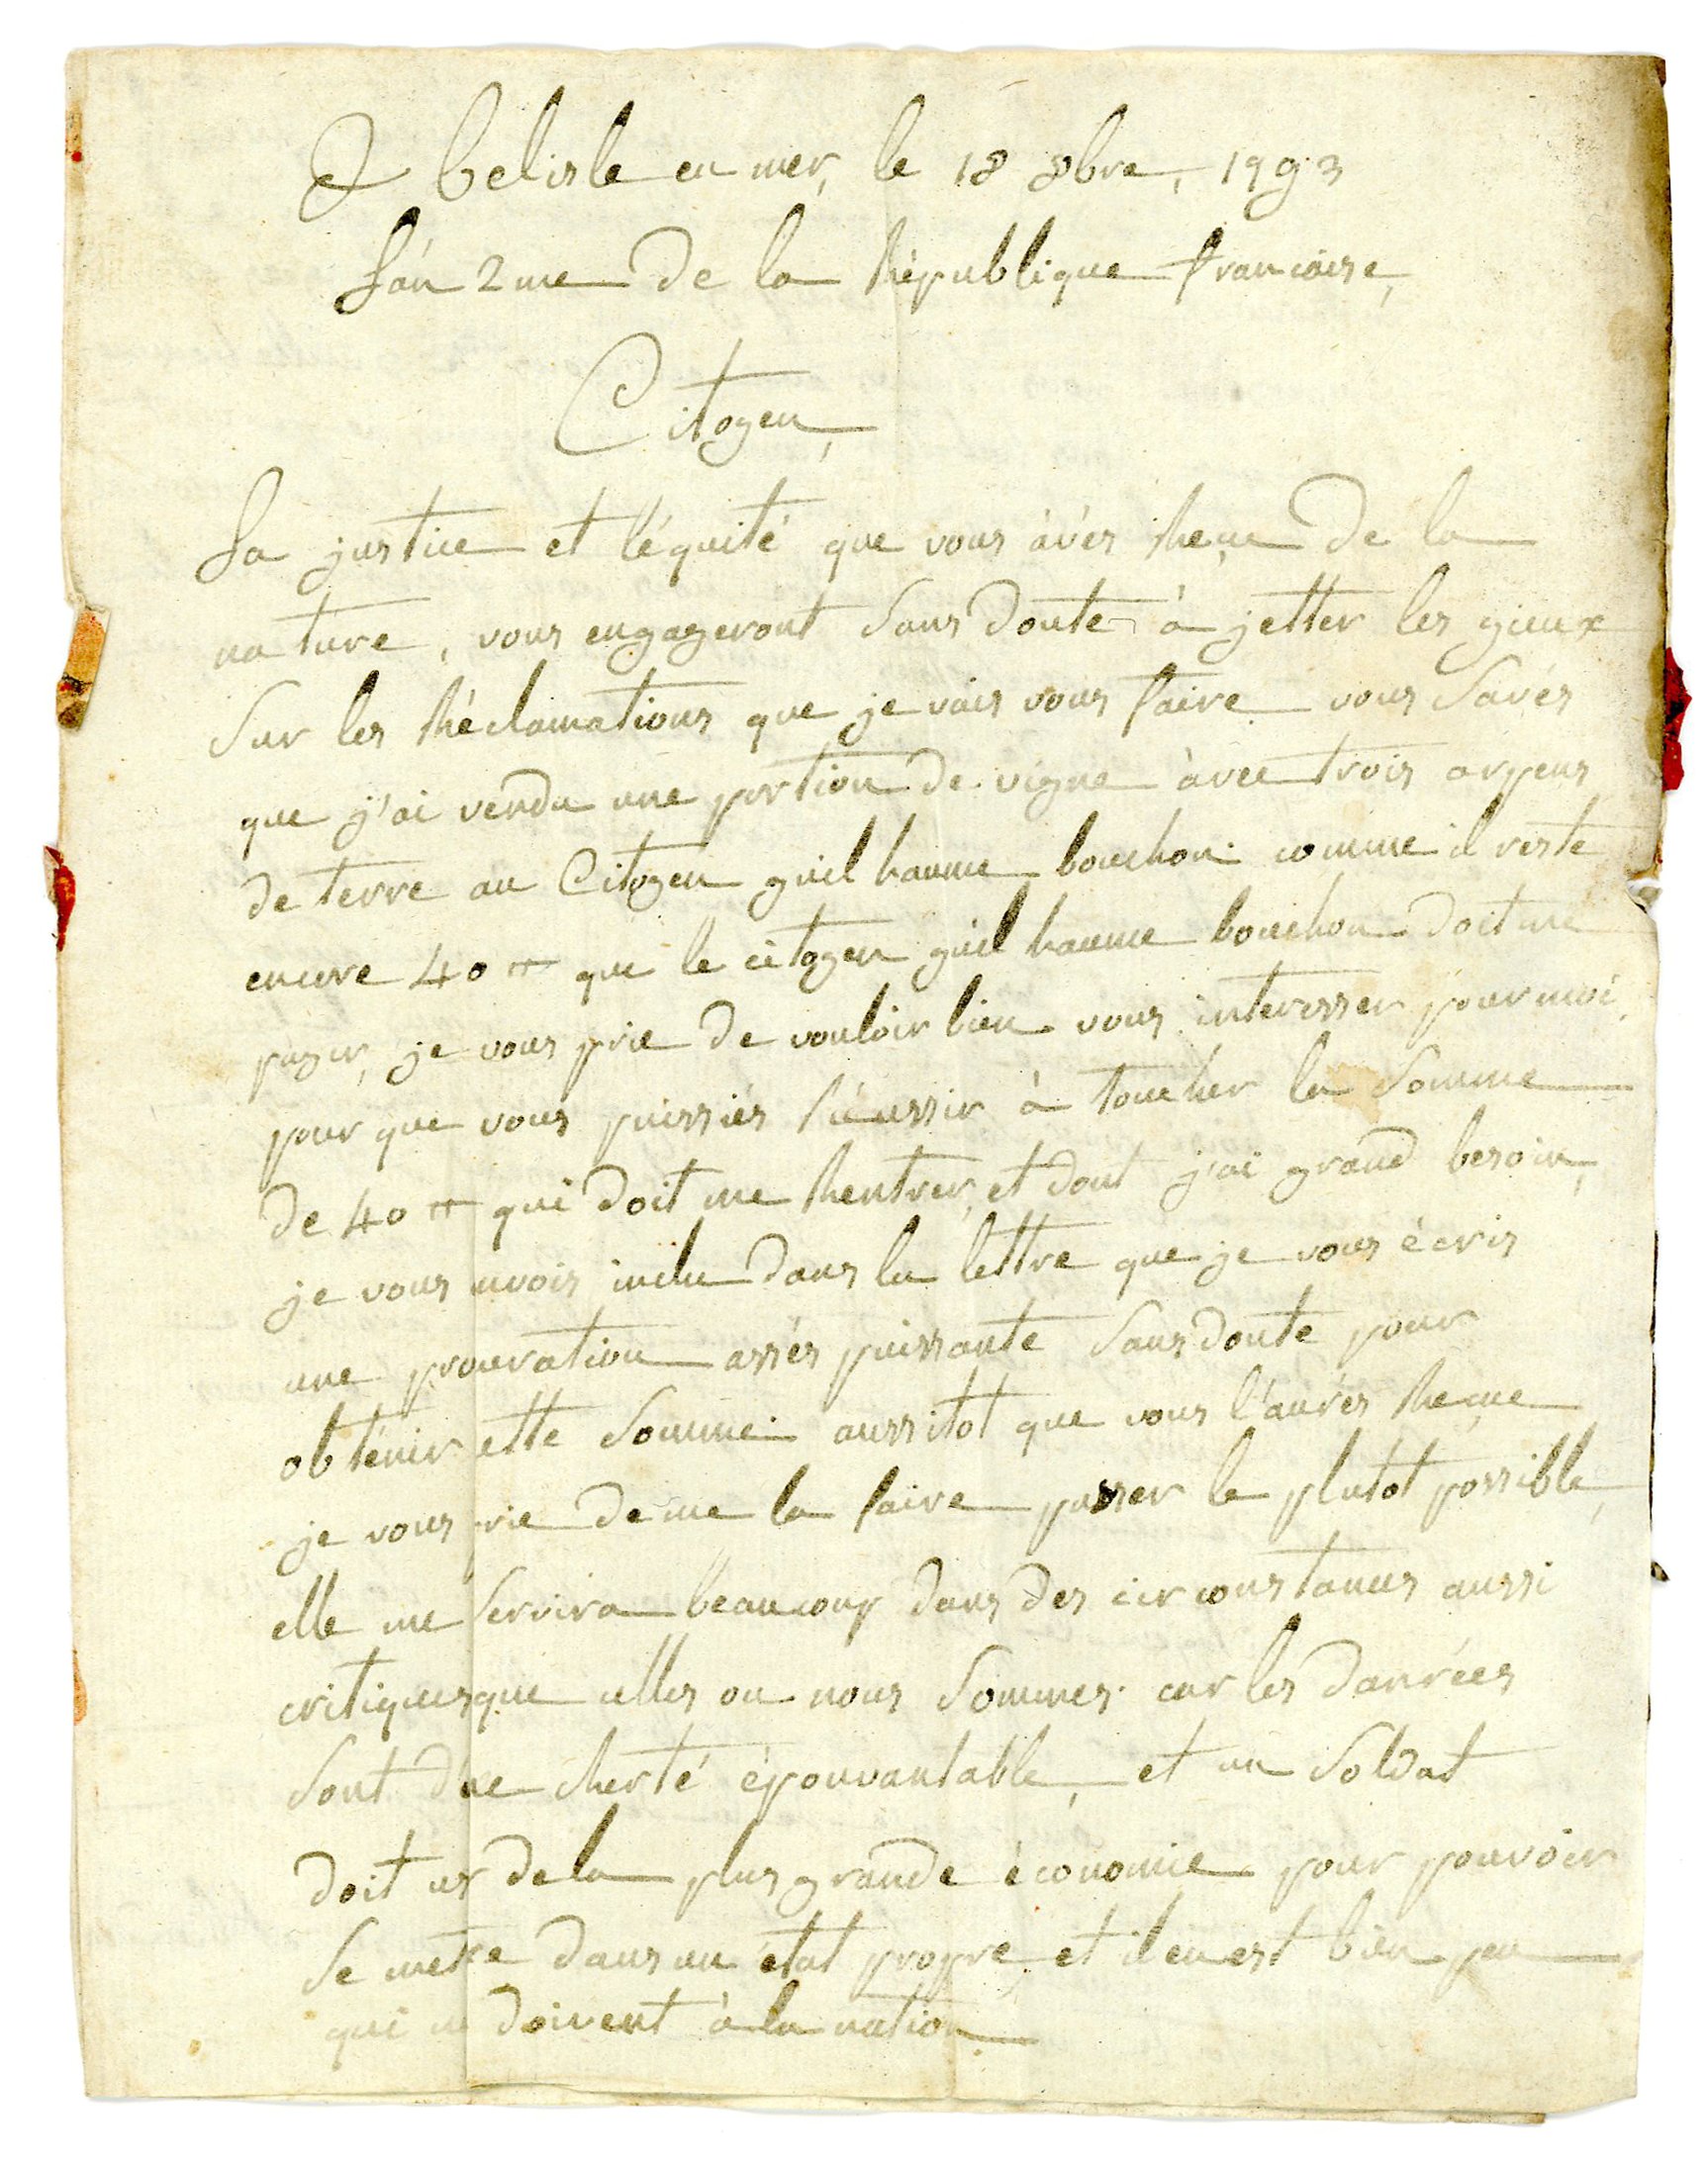 A belisle en mer, le 18 8bre, 1793
L'an 2me de la République francaise,
Citoyen,
La justice et l'équité que vous àvés Reçue de la
nature, vous engageront sans doute à jetter les yieux
sur les Réclamations que je vais vous faire vous savés
que j'ai vendu une portion de vigne àvec trois arpens
de terre au Citoyen guilhaume bouchon. comme il reste
encore 40 ₶ que le citoyen guilhaume bouchon doit me
payer, je vous prie de vouloir bien vous interesser pour moi,
pour que vous puissiés Réussir à toucher la somme
de 40 ₶ qui doit me Rentrer, et dont j'ai grand besoin,
je vous envois inclu dans la lettre que je vous écris
une procuration assés puissante sans doute pour
obtenir cette somme. aussitot que vous l'aurés Reçue
je vous prie de me la faire passer le plutot possible,
elle me servira beaucoup dans des circonstances aussi
critiques que celles ou nous sommes. car les danrées
sont d'une cherté épouvantable, et un soldat
doit user de la plus grande économie pour pouvoir
se mettre dans un état propre, et il en est bien peu
qui ne doivent à la nation.